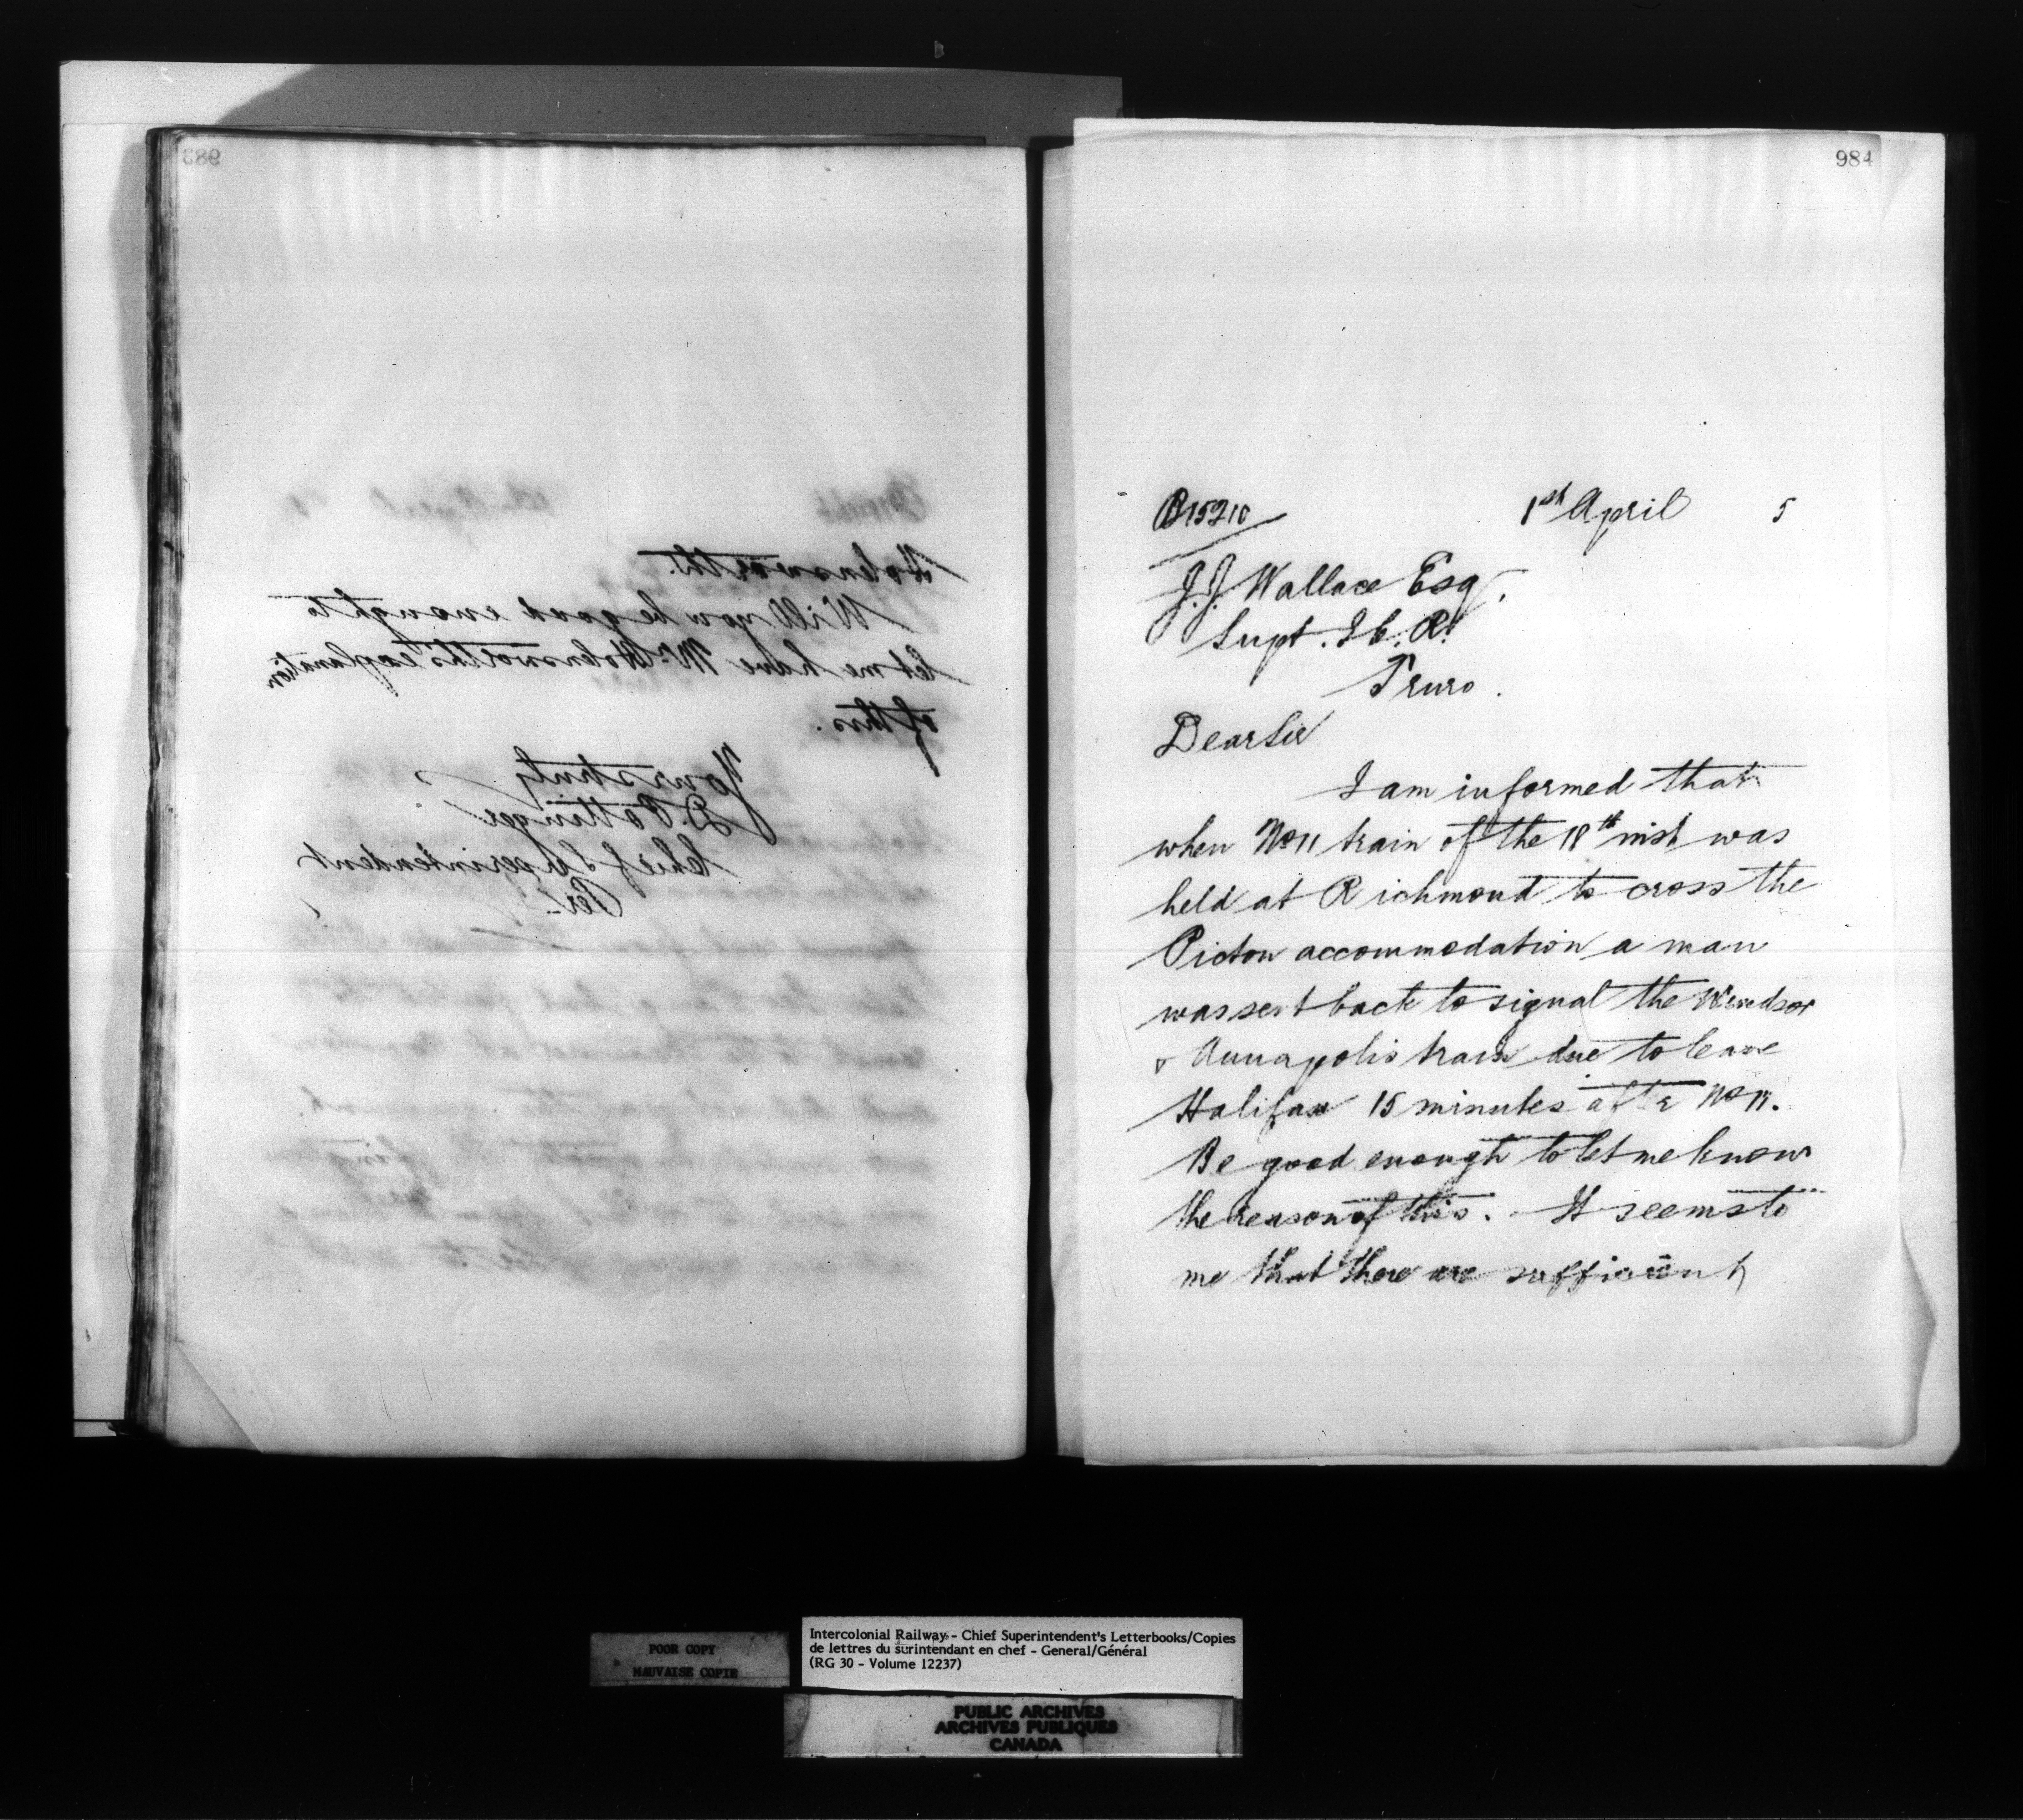 983
Holensworth.
Will you be good enough to
let me have Mr Holensworth's explanation
of this.
Yours truly
D. Pottinger
Chief Superintendent
Per
984
B15210
1st April 5
J.J. Wallace Esq.
Supt. I.C.R.
Truro.
Dear Sir
I am informed that
when No 11 train of the 18th inst was
held at Richmond to cross the
Picton accommodation a man
was sent back to signal the Windsor
& Annapolis train due to leave
Halifax 15 minutes after No 11.
Be good enough to let me know
the reason of this. It seems to
me that there are sufficient
POOR COPY
MAUVAISE COPIE
Intercolonial Railway - Chief Superintendent's Letterbooks/Copies
de lettres du surintendant en chef - General/Général
(RG 30 - Volume 12237)
PUBLIC ARCHIVES
ARCHIVES PUBLIQUES
CANADA